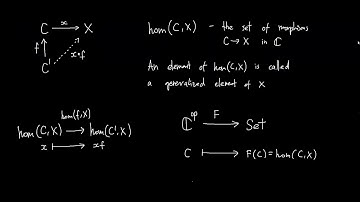 C x X
f x∘f
C'
hom(C,X) - the set of morphisms
C→X in ℂ
An element of hom(C,X) is called
a generalized element of X
hom(f,X)
hom(C,X) → hom(C',X)
x ↦ xf
ℂ^op F→ Set
C ↦ F(C)=hom(C,X)